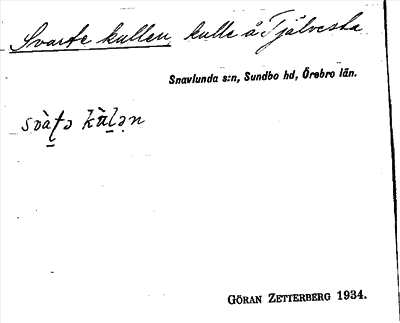 Svarte kullen, kulle å Tjälvesta
Snavlunda s:n, Sundbo hd, Örebro län.
GÖRAN ZETTERBERG 1934.